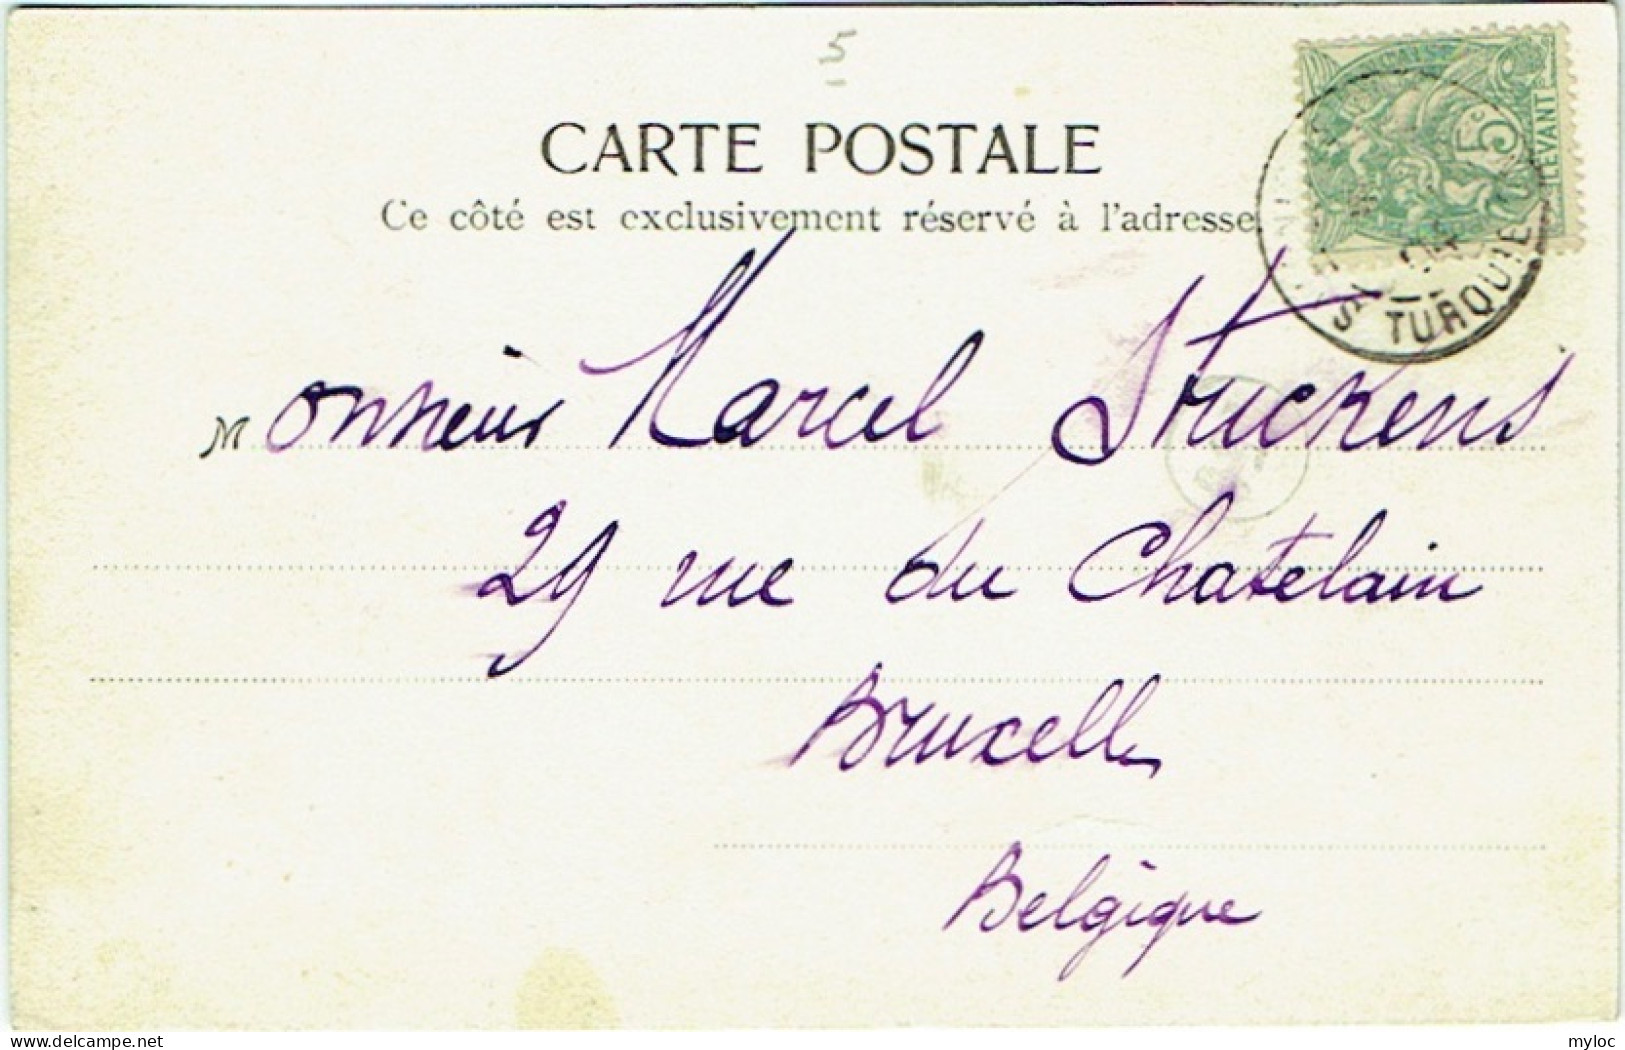 5
CARTE POSTALE
Ce côté est exclusivement réservé à l'adresse.
5c
LEVANT
TURQUIE
04
Monsieur Marcel Struckens
29 rue du Chatelain
Bruxelles
Belgique
delcampe.net
myloc